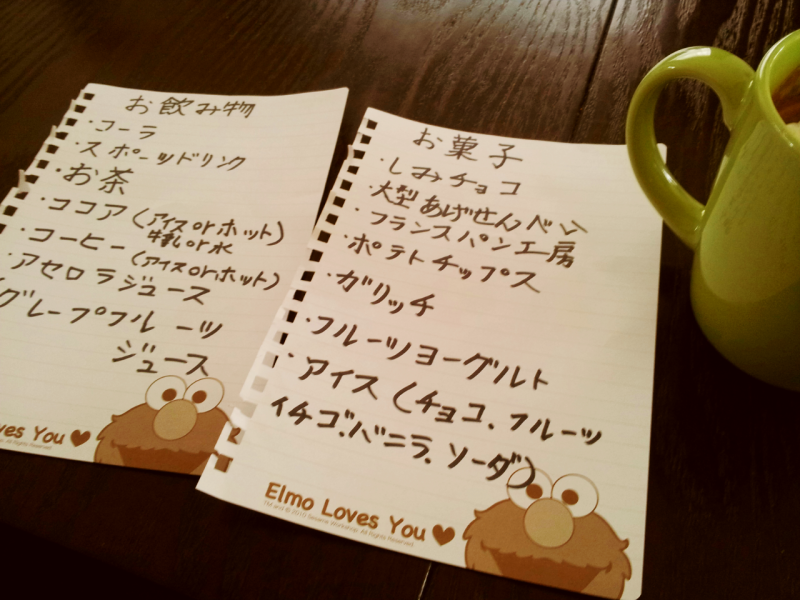 お飲み物
・コーラ
・スポーツドリンク
・お茶
・ココア(アイスorホット)
牛乳or水
・コーヒー(アイスorホット)
・アセロラジュース
グレープフルーツ
ジュース
ves You
お菓子
・しみチョコ
・大型あげせんべい
・フランスパン工房
・ポテトチップス
・ガリッチ
・フルーツヨーグルト
・アイス(チョコ、フルーツ
イチゴ、バニラ、ソーダ)
Elmo Loves You
TM and © 2010 Sesame Workshop. All Rights Reserved.